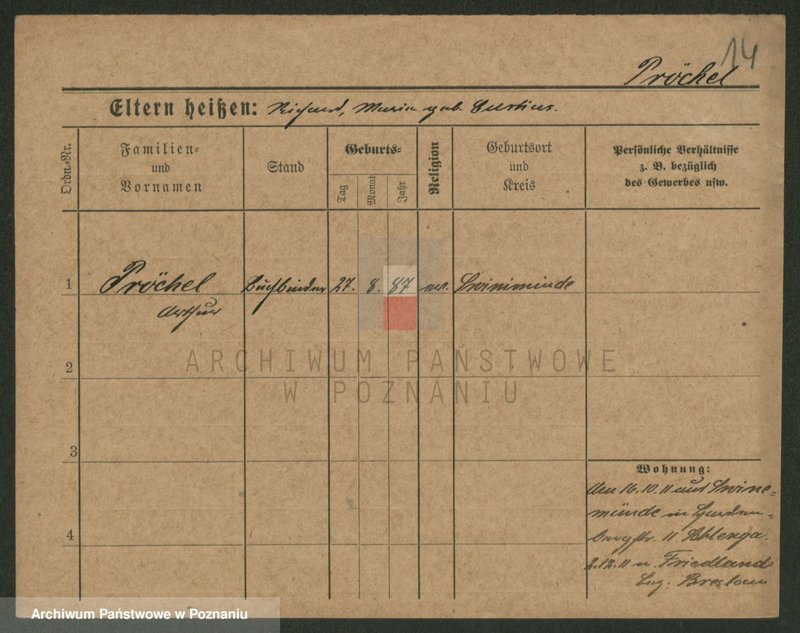 14
Pröchel
Eltern heißen: Richard, Maria geb.
Ordn.-Nr.
Familien- und Vornamen
Stand
Geburts-
Tag
Monat
Jahr
Religion
Geburtsort und Kreis
Persönliche Verhältnisse z. B. bezüglich des Gewerbes usw.
1
Pröchel
Arthur
Buchbinder
27.
8.
87
ev.
Swinemünde
ARCHIWUM PAŃSTWOWE
W POZNANIU
2
3
4
Wohnung:
Am 16.10.11 aus Swine-
münde in Harden-
bergstr. 11
2.12.11 n. Friedland
Bez. Breslau
Archiwum Państwowe w Poznaniu